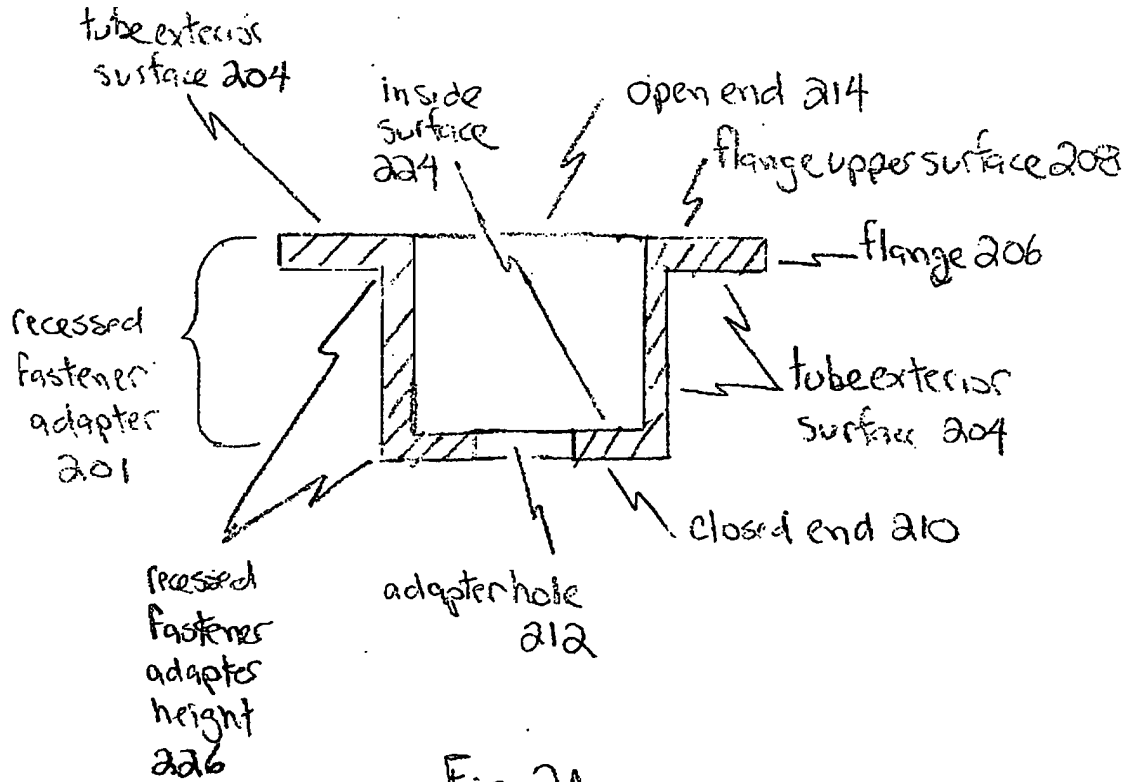 tube exterior
surface 204
inside
surface
224
open end 214
flange upper surface 208
flange 206
recessed
fastener
adapter
201
tube exterior
surface 204
closed end 210
adapter hole
212
recessed
fastener
adapter
height
226
Fig. 2A